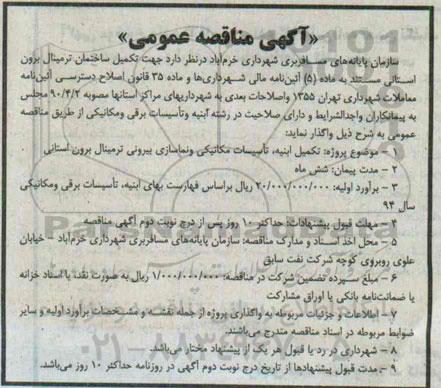 «آگهی مناقصه عمومی»
سازمان پایانه‌های مسافربری شهرداری خرم‌آباد درنظر دارد جهت تکمیل ساختمان ترمینال برون
استانی مستند به ماده (۵) آئین‌نامه مالی شهرداری‌ها و ماده ۳۵ قانون اصلاح دسترسی آئین‌نامه
معاملات شهرداری تهران ۱۳۵۵ واصلاحات بعدی به شهرداریهای مراکز استانها مصوبه ۹۰/۴/۲ مجلس
به پیمانکاران واجدالشرایط و دارای صلاحیت در رشته ابنیه وتأسیسات برقی ومکانیکی از طریق مناقصه
عمومی به شرح ذیل واگذار نماید:
۱ – موضوع پروژه: تکمیل ابنیه، تأسیسات مکانیکی ونماسازی بیرونی ترمینال برون استانی
۲ – مدت پیمان: شش ماه
۳ – برآورد اولیه: ۲۰/۰۰۰/۰۰۰/۰۰۰ ریال براساس فهارست بهای ابنیه، تأسیسات برقی ومکانیکی
سال ۹۴
۴ – مهلت قبول پیشنهادات: حداکثر ۱۰ روز پس از درج نوبت دوم آگهی مناقصه
۵ – محل اخذ اسناد و مدارک مناقصه: سازمان پایانه‌های مسافربری شهرداری خرم‌آباد – خیابان
علوی روبروی کوچه شرکت نفت سابق
۶ – مبلغ سپرده تضمین شرکت در مناقصه: ۱/۰۰۰/۰۰۰/۰۰۰ ریال به صورت نقد، یا اسناد خزانه
یا ضمانت‌نامه بانکی یا اوراق مشارکت
۷ – اطلاعات و جزئیات مربوطه به واگذاری پروژه از جمله نقشه و مشخصات برآورد اولیه و سایر
ضوابط مربوطه در اسناد مناقصه مندرج می‌باشند.
۸ – شهرداری در رد یا قبول هر یک از پیشنهاد مختار می‌باشد.
۹ – مدت قبول پیشنهادها از تاریخ درج نوبت دوم آگهی در روزنامه حداکثر ۱۰ روز می‌باشد.